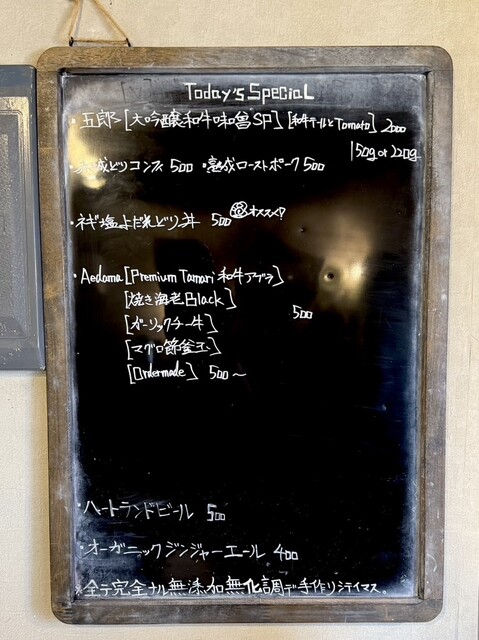 Today's Special
・五郎[大吟醸和牛味噌SP] [和牛テールとTomato] 2000
150g or 220g
どりコンフィ 500 ・熟成ローストポーク 500
・ネギ塩よだれどり丼 500 オススメ!
・Aedama [Premium Tamari 和牛アブラ]
[焼き海老Black]
500
[ガーリックチー牛]
[マグロ節釜玉]
[Ordermade] 500〜
・ハートランドビール 500
・オーガニックジンジャーエール 400
※全テ完全ナル無添加無化調デ手作リシテイマス。